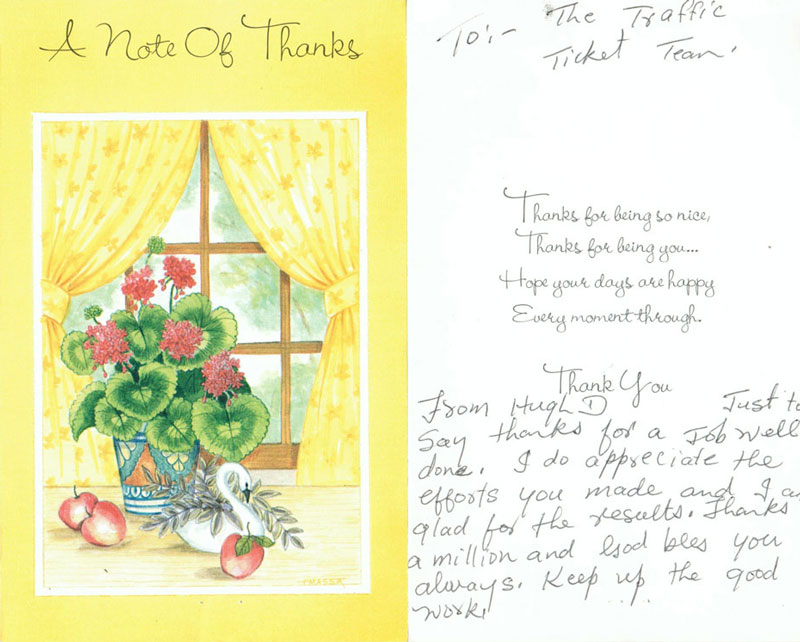 A Note Of Thanks
MASSA
To:- The Traffic
Ticket Team.
Thanks for being so nice,
Thanks for being you...
Hope your days are happy
Every moment through.
Thank You
From Hugh D Just to
Say thanks for a Job well
done. I do appreciate the
efforts you made and I a
glad for the results. Thanks
a million and God bles you
always. Keep up the good
work.